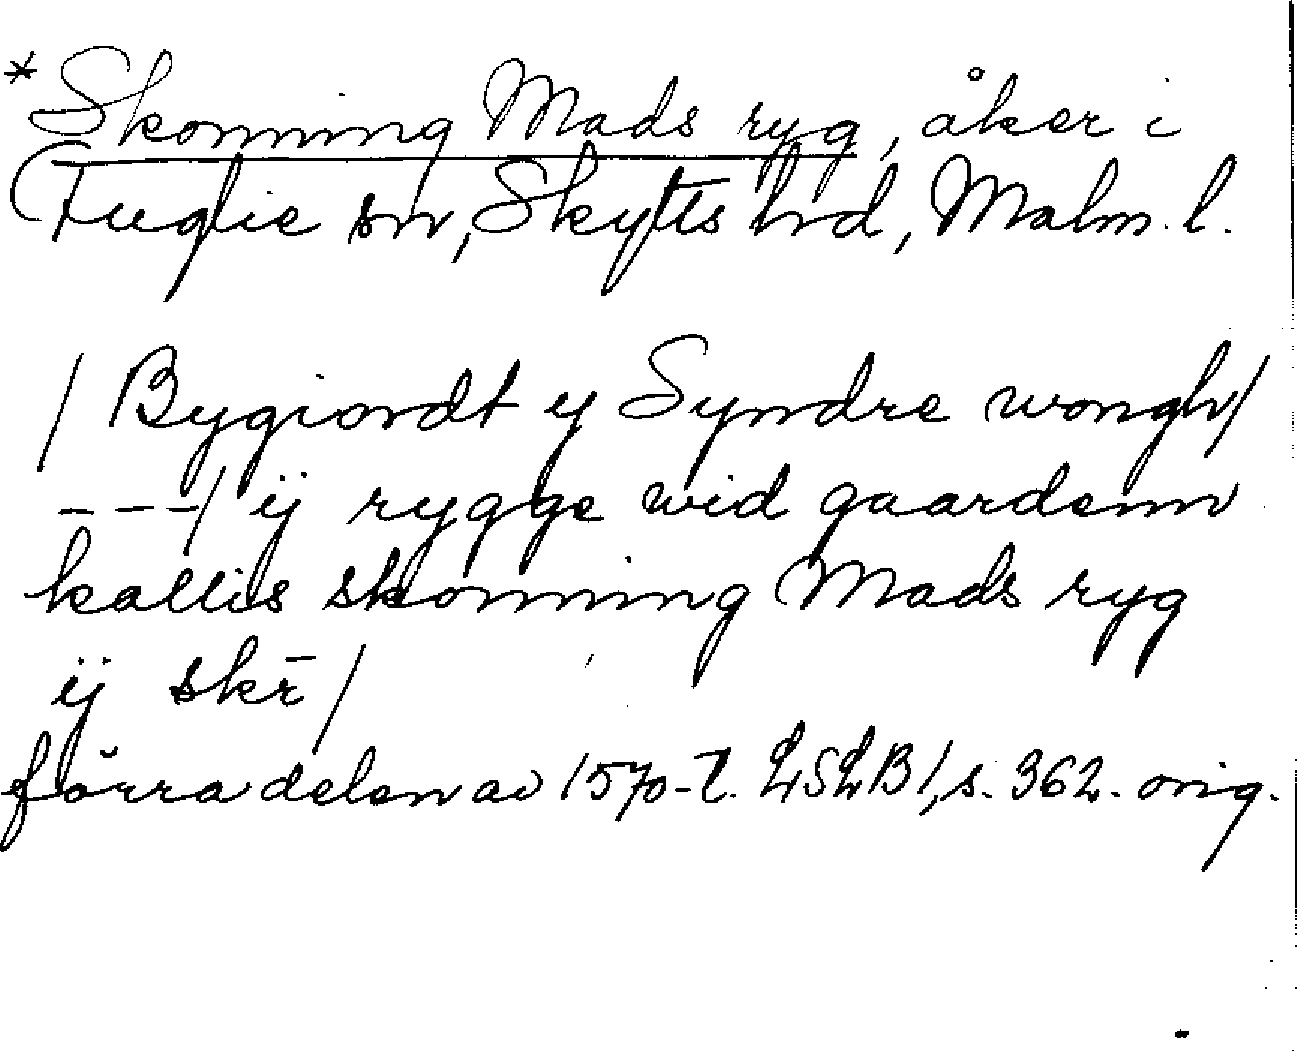 * Skonning Mads ryg, åker i
Fuglie sn, Skytts hrd, Malm. l.
/ Bygiordt y Syndre wongh /
---/ ij rygge wid gaardenn
kallis skonning Mads ryg
ij skr̄ /
förra delen av 1570-t. LSLB 1, s. 362. orig.